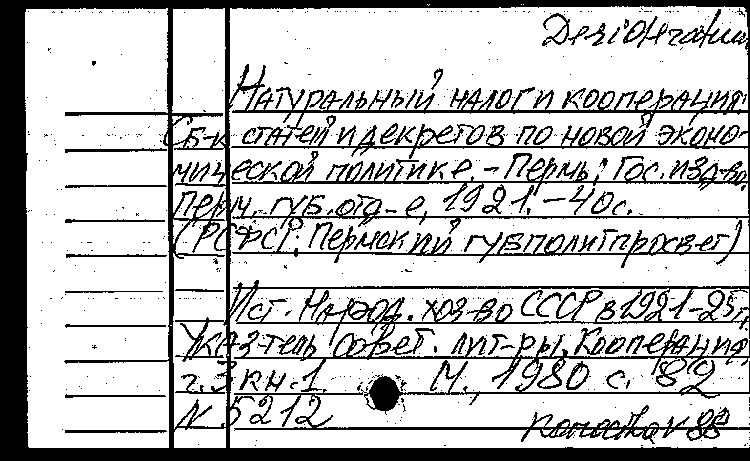 Desiderata
Натуральный налог и кооперация:
Сб-к статей и декретов по новой эконо-
мической политике. - Пермь: Гос. изд-во,
Перм. губ. отд-е, 1921. - 40 с.
(РСФСР. Пермский губполитпросвет)
Ист. Народ. хоз-во СССР в 1921-25 гг.
Указ-тель совет. лит-ры. Кооперация
т. 3 кн. 1. М., 1980 с. 82
N 5212
88